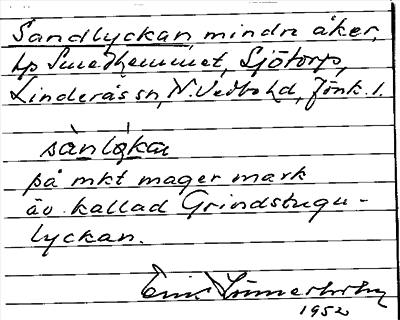 Sandlyckan, mindre åker,
hp Smedhemmet, Sjötorp,
Linderås sn, N. Vedbo hd, Jönk. l.
sànlỏkα
på mkt mager mark
äv. kallad Grindstugu-
lyckan.
1952